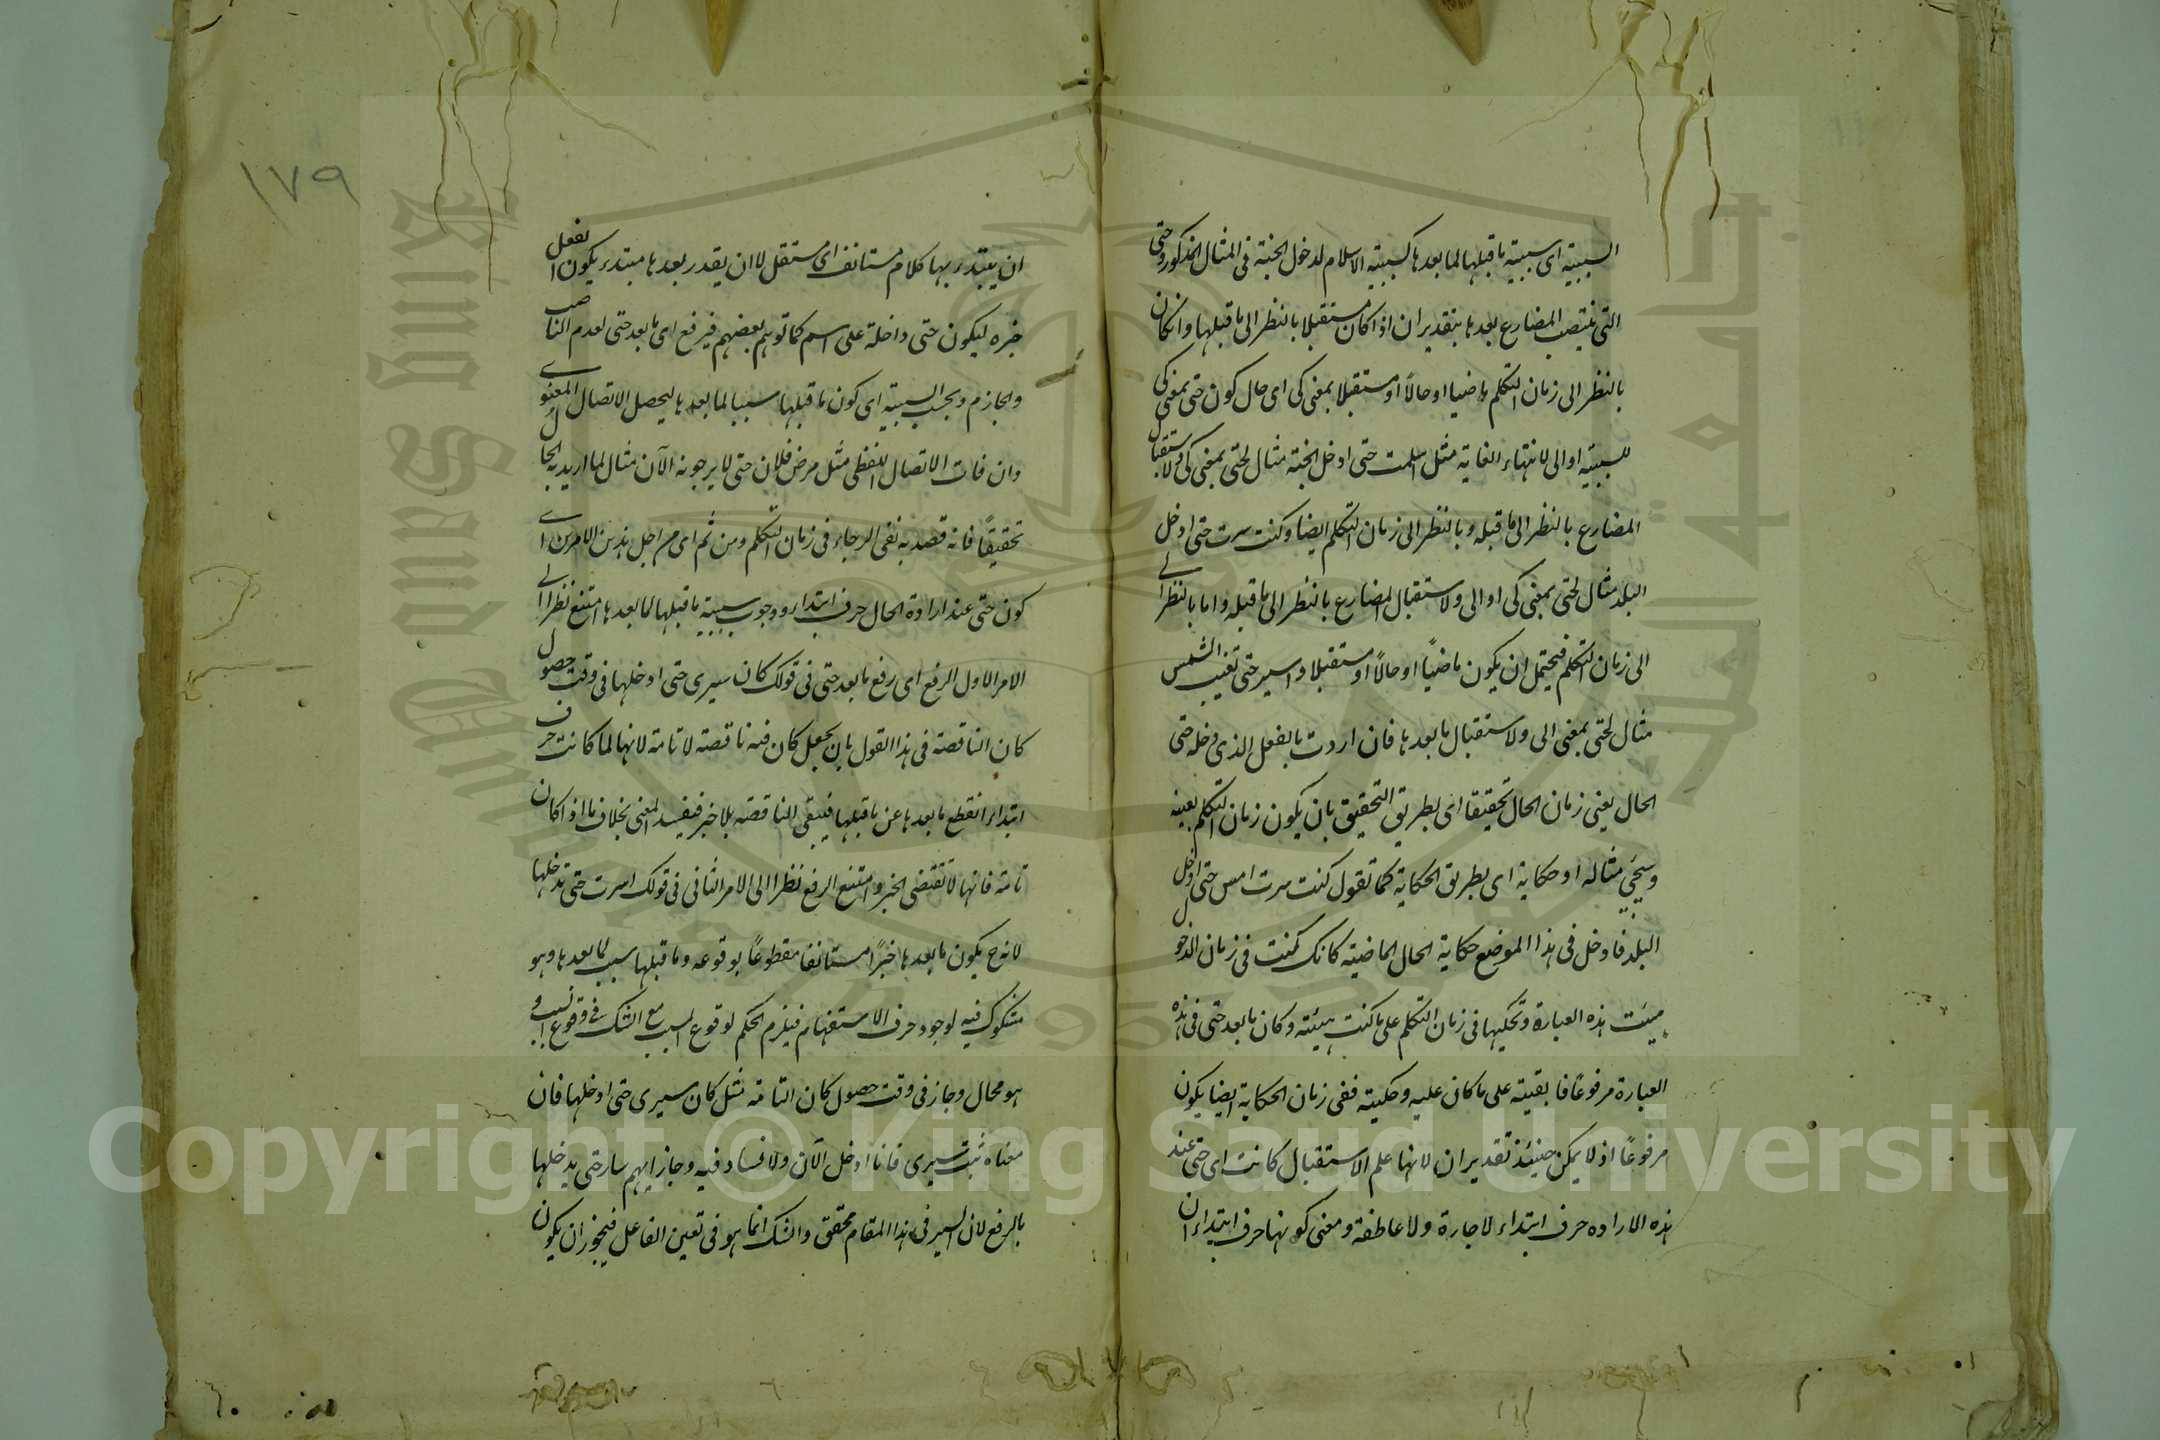 السببية اى سببية ما قبلها لما بعدها كسببية الاسلام لدخول الجنة فى المثال المذكور وحتى
التى ينتصب المضارع بعدها بتقدير ان اذا كان مستقبلا بالنظر الى ما قبلها وان كان
بالنظر الى زمان التكلم ماضيا او حالاً او مستقبلا بمعنى كى اى حال كون حتى بمعنى كى
للسببية او الى لانتهاء الغاية مثل اسلمت حتى ادخل الجنة مثال لحتى بمعنى كى ولاستقبال
المضارع بالنظر الى ما قبله وبالنظر الى زمان التكلم ايضا وكنت سرت حتى ادخل
البلد مثال لحتى بمعنى كى او الى ولاستقبال المضارع بالنظر الى ما قبله واما بالنظر الى
الى زمان التكلم فيحتمل ان يكون ماضياً او حالاً او مستقبلا واسير حتى تغيب الشمس
مثال لحتى بمعنى الى ولاستقبال ما بعدها فان اردت بالفعل الذى دخله حتى
الحال يعنى زمان الحال تحقيقا اى بطريق التحقيق بان يكون زمان التكلم بعينه
وسيجئ مثاله او حكاية اى بطريق الحكاية كما تقول كنت سرت امس حتى ادخل
البلد فادخل فى هذا الموضع حكاية الحال الماضية كانك كنت فى زمان الدخول
هيئت هذه العبارة وتحكيها فى زمان التكلم على ما كنت هيئته وكان ما بعد حتى فى هذه
العبارة مرفوعاً فابقيته على ما كان عليه وحكيته ففى زمان الحكاية ايضا يكون
مرفوعاً اذ لا يمكن حينئذ تقدير ان لانها علم الاستقبال كانت اى حتى عند
هذه الاراده حرف ابتداء لا جارة ولا عاطفة ومعنى كونها حرف ابتداء ان
ان يبتدء بها كلام مستانف اى مستقل لا ان يقدر بعدها مبتدء يكون الفعل
خبره ليكون حتى داخلة على اسم كما توهم بعضهم فيرفع اى ما بعد حتى لعدم الناصب
والجازم ويجب السببية اى كون ما قبلها سببا لما بعدها ليحصل الاتصال المعنوى
وان فات الاتصال اللفظى مثل مرض فلان حتى لا يرجونه الآن مثال لما اريد به الحال
تحقيقاً فانه قصد به نفى الرجاء فى زمان التكلم ومن ثم اى من اجل هذين الامرين اى
كون حتى عند ارادة الحال حرف ابتداء ووجوب سببية ما قبلها لما بعدها امتنع نظرا الى
الامر الاول الرفع اى رفع ما بعد حتى فى قولك كان سيرى حتى ادخلها فى وقت حصول
كان الناقصة فى هذا القول بان يجعل كان فيه ناقصة لا تامة لانها لما كانت حرف
ابتداء انقطع ما بعدها عن ما قبلها فيبقى الناقصة بلا خبر فيفسد المعنى بخلاف ما اذا كان
تامة فانها لا تقتضى الخبر وامتنع الرفع نظرا الى الامر الثانى فى قولك اسرت حتى تدخلها
لانه ح يكون ما بعدها خبرًا مستانفا مقطوعاً بوقوعه وما قبلها سبب لما بعدها وهو
مشكوك فيه لوجود حرف الاستفهام فيلزم الحكم لوقوع المسبب مع الشك فى وقوع السبب و
هو محال وجاز فى وقت حصول كان التامة مثل كان سيرى حتى ادخلها فان
معناه ثبت سيرى فانا ادخل الآن ولا فساد فيه وجاز ايهم سار حتى يدخلها
بالرفع لان السير فى هذا المقام محقق والشك انما هو فى تعين الفاعل فيجوز ان يكون
١٧٩
King Saud University
جامعة الملك سعود
Copyright © King Saud University